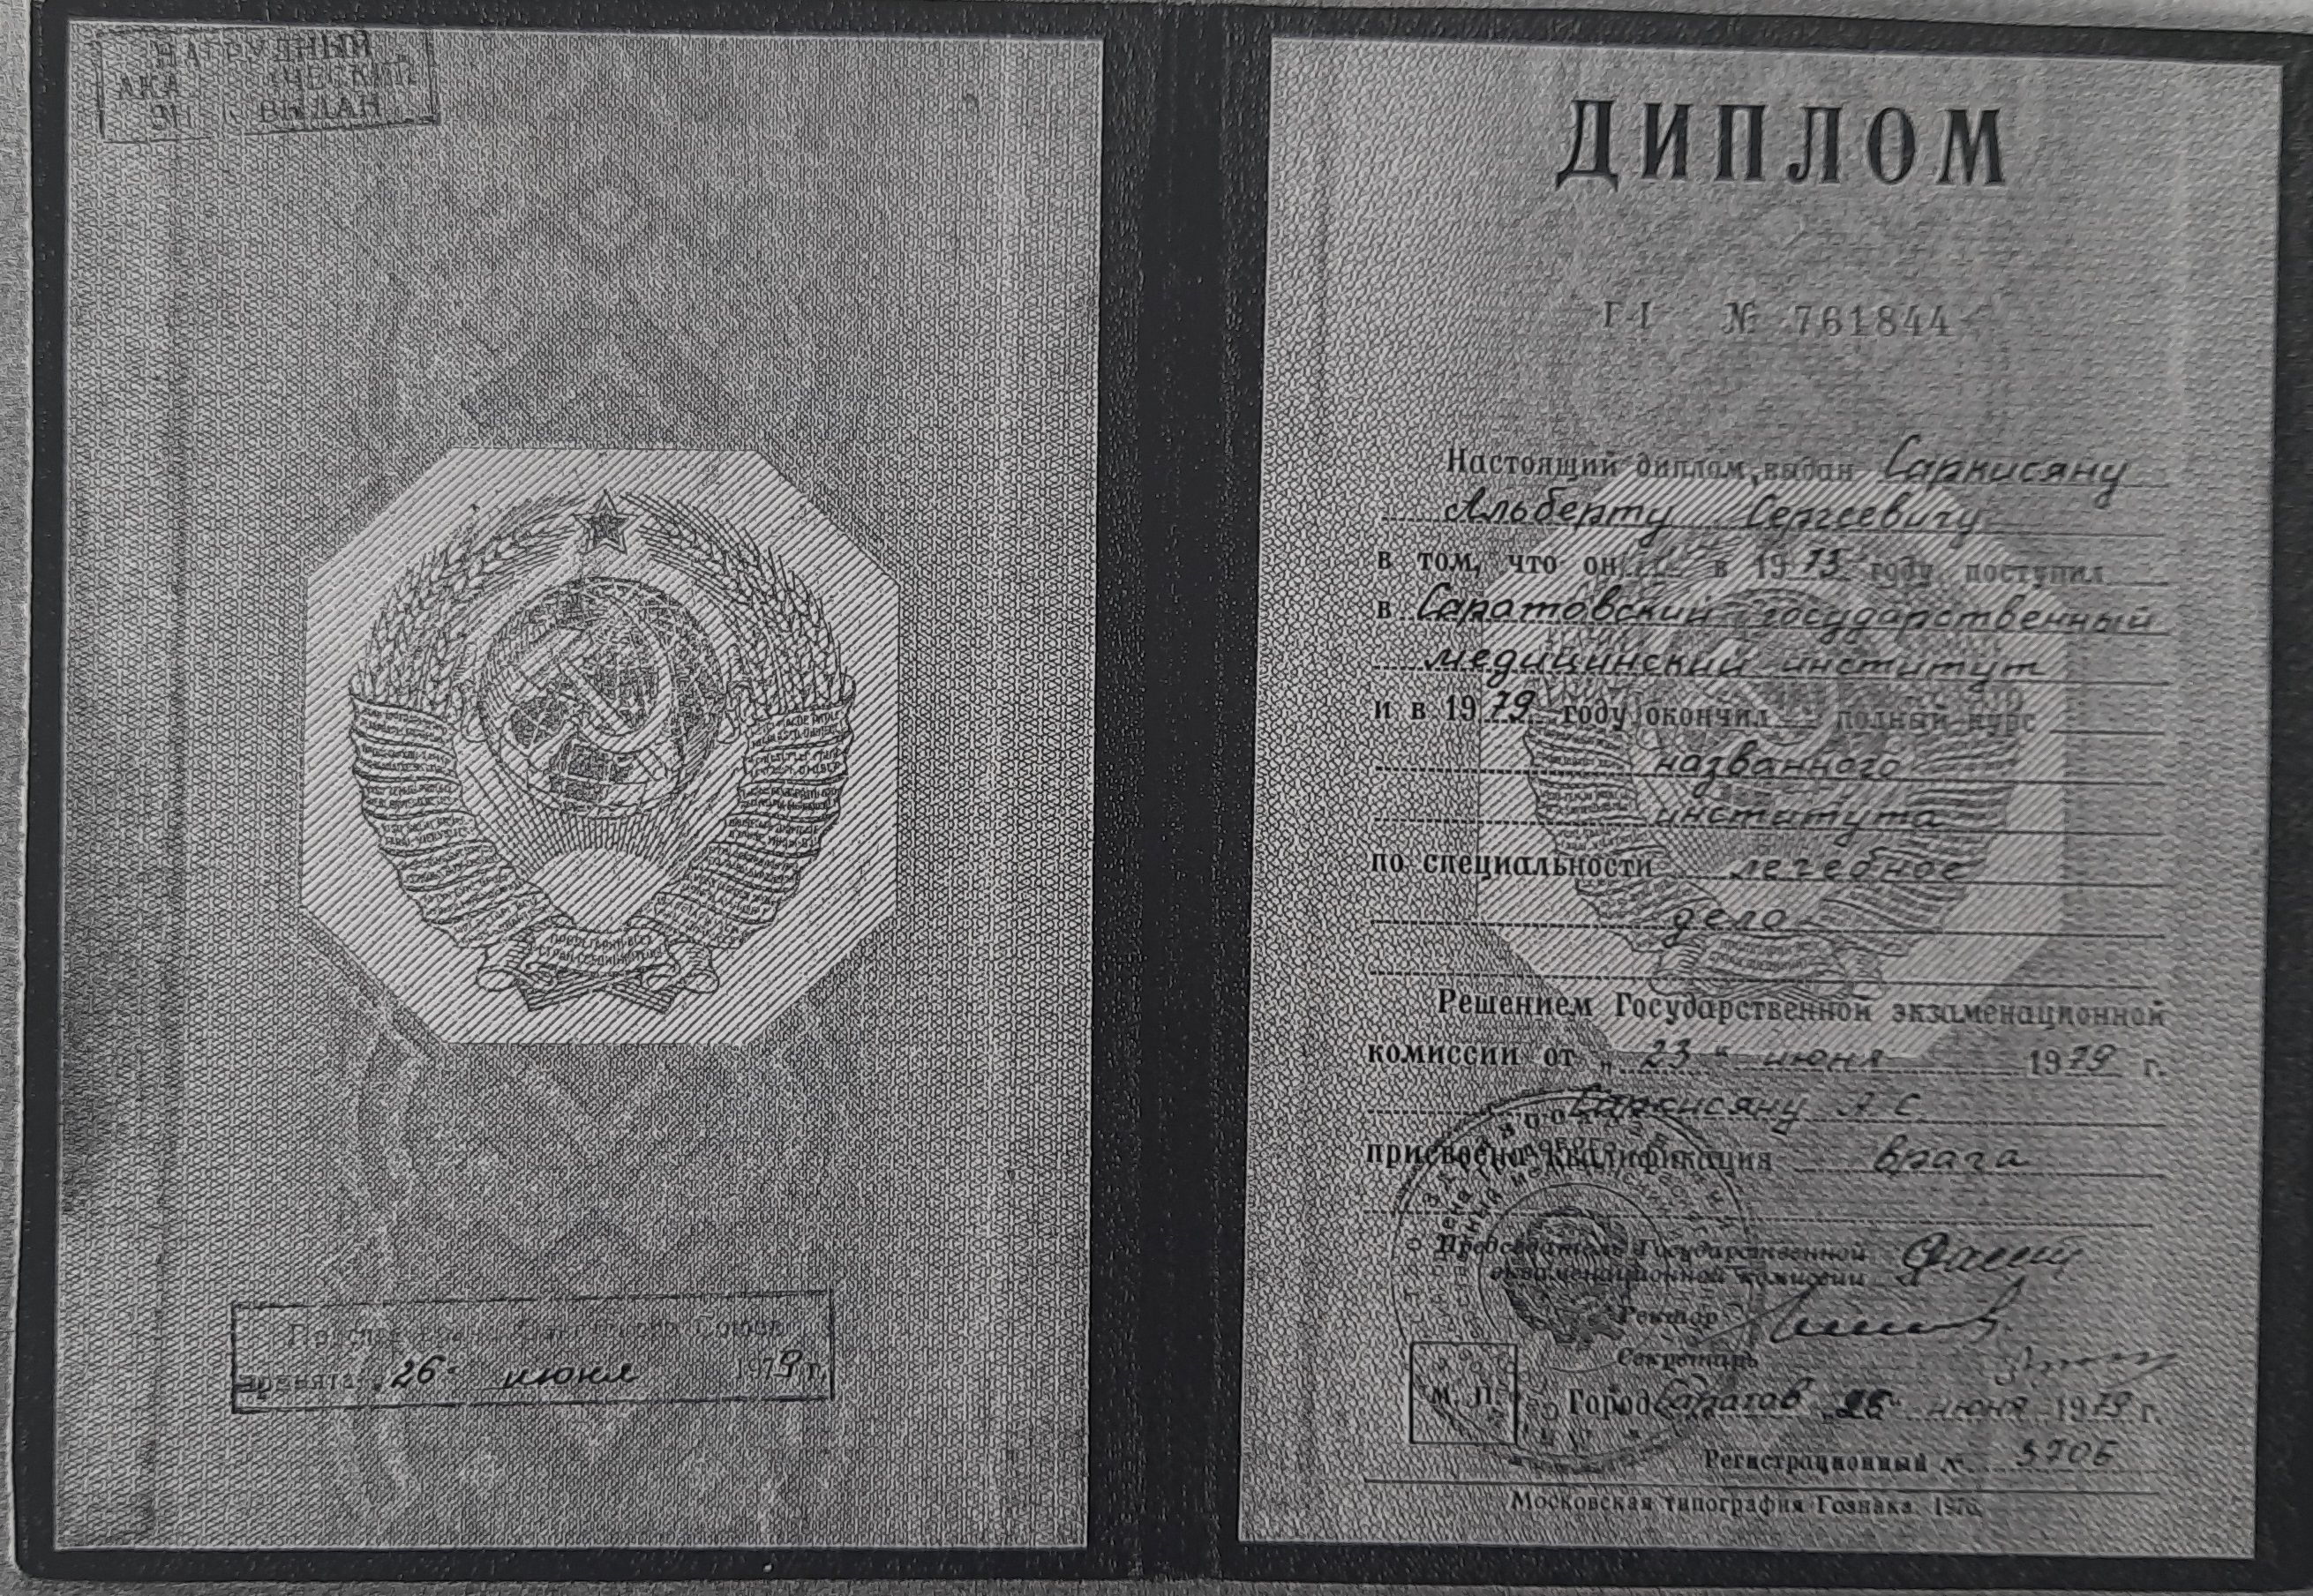 НАГРУДНЫЙ
ВЫДАН
Присяга врача Советского Союза
принята „26" июня 1979 г.
ДИПЛОМ
Г-I № 761844
Настоящий диплом выдан Саркисяну
Альберту Сергеевичу
в том, что он в 1973 году поступил
в Саратовский государственный
медицинский институт
и в 1979 году окончил полный курс
названного
института
по специальности лечебное
дело
Решением Государственной экзаменационной
комиссии от „23" июня 1979 г.
Саркисяну А С
присвоена квалификация врача
Председатель Государственной
экзаменационной комиссии
Ректор
Секретарь
М. П.
Город Саратов „26" июня 1979 г.
Регистрационный № 3706
Московская типография Гознака. 1976.